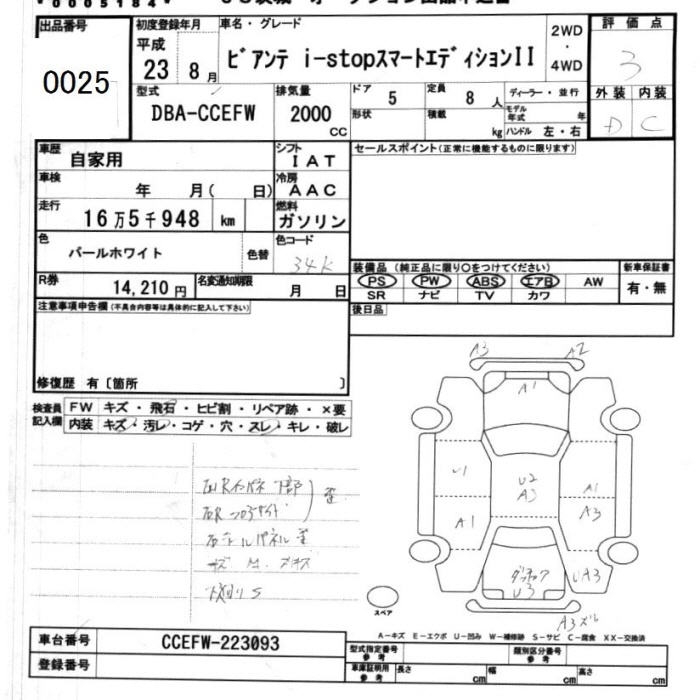 出品番号
0025
初度登録年月
平成
23 8月
車名・グレード
ビアンテ i-stopスマートエディションII
2WD
・
4WD
評価点
3
外装 内装
D C
型式
DBA-CCEFW
排気量
2000
CC
ドア
5
定員
8 人
ディーラー・並行
形状
積載
kg
モデル年式 年
ハンドル 左・右
車歴
自家用
シフト
IAT
車検
年 月( 日)
冷房
AAC
走行
16万5千948 km
燃料
ガソリン
色
パールホワイト
色替
色コード
34K
R券
14,210円
名変通知期限
月 日
セールスポイント(正常に機能するものに限ります)
装備品 (純正品に限り○をつけてください)
新車保証書
PS PW ABS エアB AW
有・無
SR ナビ TV カワ
後日品
注意事項申告欄(不具合内容等は具体的に記入して下さい)
修復歴 有〔箇所 〕
検査員
記入欄
FW キズ・飛石・ヒビ割・リペア跡・×要
内装 キズ・汚レ・コゲ・穴・スレ・キレ・破レ
A3 A2
A1
U1
U2
A3
A1
A1
A3
U3
UA3
A3 ズレ
スペア
A-キズ E-エクボ U-凹み W-補修跡 S-サビ C-腐食 XX-交換済
車台番号
CCEFW-223093
登録番号
型式指定番号
参考
類別区分番号
参考
車庫証明用
参考
長さ cm 幅 cm 高さ cm